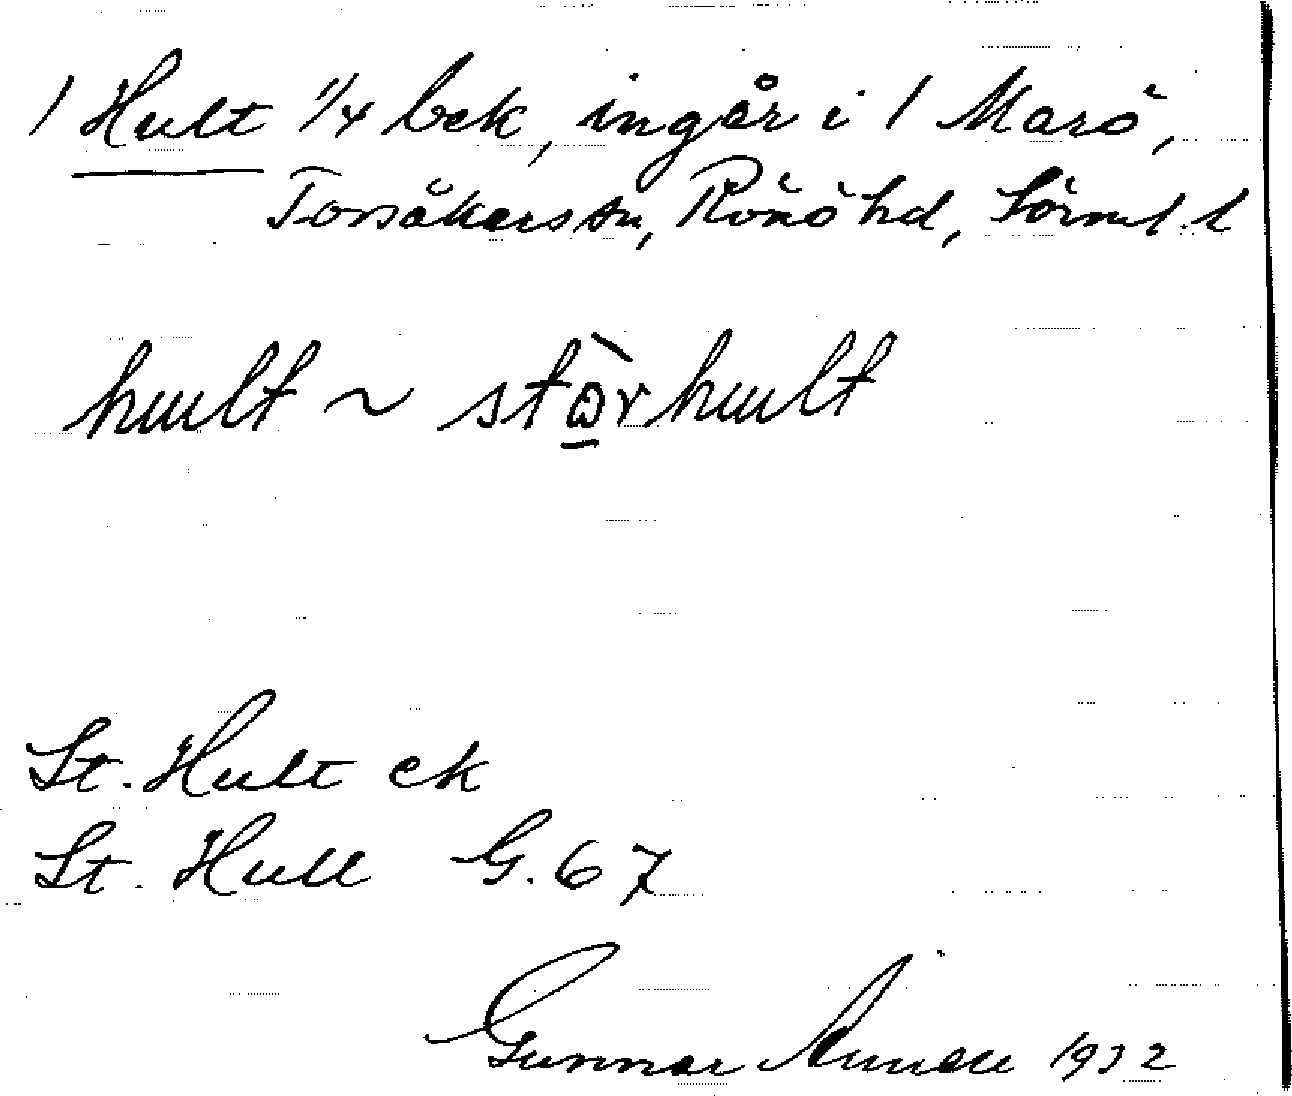 1 Hult 1/4 bek, ingår i 1 Marö,
Torsåkers sn, Rönö hd, Sörml. l
hult ~ stòrhult
St. Hult ek
St. Hull G. 67
Gunnar 1932